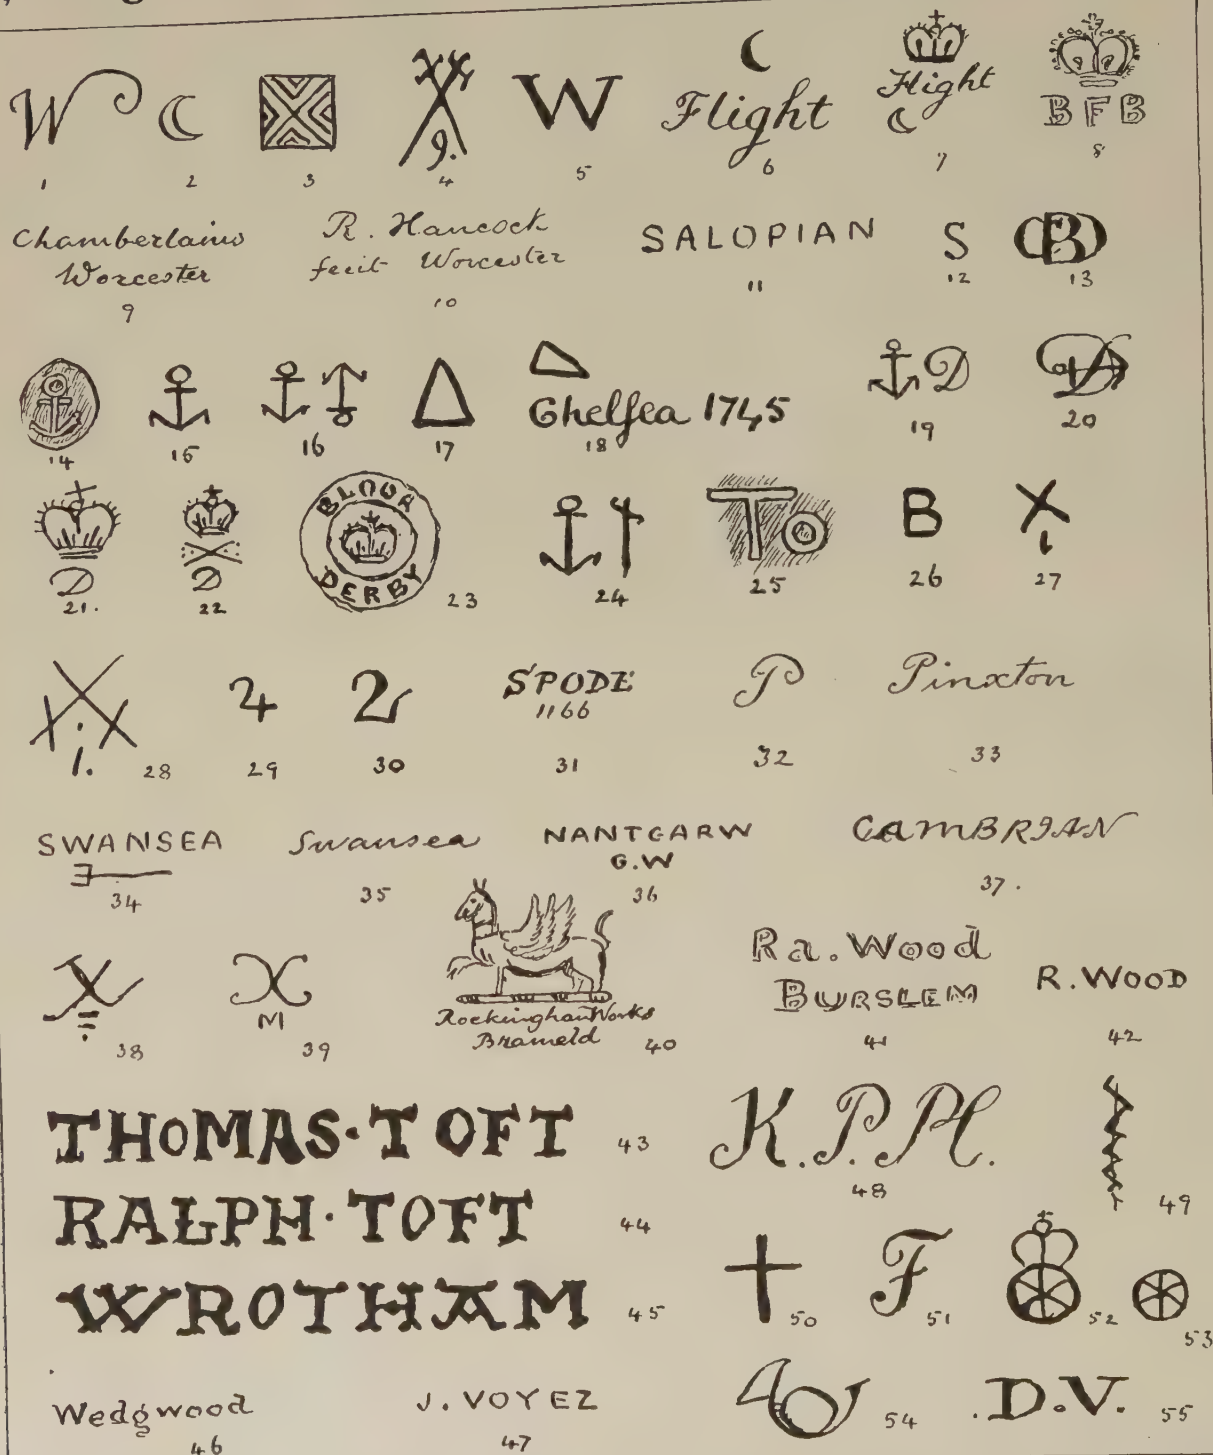 W
1
2
3
9.
4
W
5
Flight
6
Flight
7
B F B
8
Chamberlains
Worcester
9
R. Hancock
fecit Worcester
10
SALOPIAN
11
S
12
13
14
15
16
17
Chelsea 1745
18
D
19
20
D
21.
D
22
BLOOR
DERBY
23
24
To
25
B
26
27
1.
28
29
2
30
SPODE
1166
31
P
32
Pinxton
33
SWANSEA
34
Swansea
35
NANTGARW
G.W
36
CAMBRIAN
37.
38
M
39
Rockingham Works
Brameld
40
Ra. Wood
BURSLEM
41
R. WOOD
42
THOMAS·TOFT
43
RALPH·TOFT
44
WROTHAM
45
Wedgwood
46
J. VOYEZ
47
K.P.M.
48
49
50
F
51
52
53
54
.D.V.
55